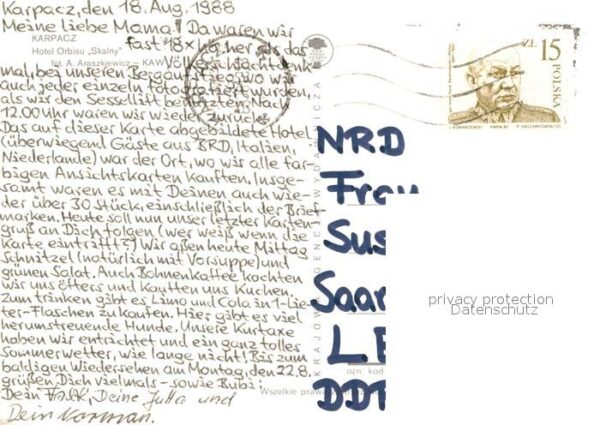 Karpacz, den 18. Aug. 1988
Meine liebe Mama! Da waren wir
fast 18x höher als das
KARPACZ
Hotel Orbisu „Skalny"
fot. A. Araszkiewicz — KAW
Völkerschlachtdenk
mal, bei unseren Bergaufstieg, wo wir
auch jeder einzeln fotografiert wurden,
als wir den Sessellift benutzten. Nach
12.00 Uhr waren wir wieder zurück.
Das auf dieser Karte abgebildete Hotel
(überwiegend Gäste aus BRD, Italien,
Niederlande) war der Ort, wo wir alle far-
bigen Ansichtskarten kauften. Insge-
samt waren es mit Deinen auch wie-
der über 30 Stück, einschließlich der Brief
marken. Heute soll nun unser letzter Karten-
gruß an Dich folgen (wer weiß wenn die
Karte eintrifft?) Wir aßen heute Mittag
Schnitzel (natürlich mit Vorsuppe) und
grünen Salat. Auch Bohnenkaffee kochten
wir uns öfters und kauften uns Kuchen.
Zum trinken gibt es Limo und Cola in 1-Lie-
ter-Flaschen zu kaufen. Hier gibt es viel
herumstreunende Hunde. Unsere Kurtaxe
haben wir entrichtet und ein ganz tolles
Sommerwetter, wie lange nicht! Bis zum
baldigen Wiedersehen am Montag, den 22.8.
grüßen Dich vielmals - sowie Bubi:
Dein Deine Jutta und
Dein Norman.
KRAJOWA AGENCJA WYDAWNICZA
Wszelkie prawa
ZŁ 15
POLSKA
PWPW 87
NRD
Frau
Sus
Saar
LE
DDR
ozn. kod.
privacy protection
Datenschutz